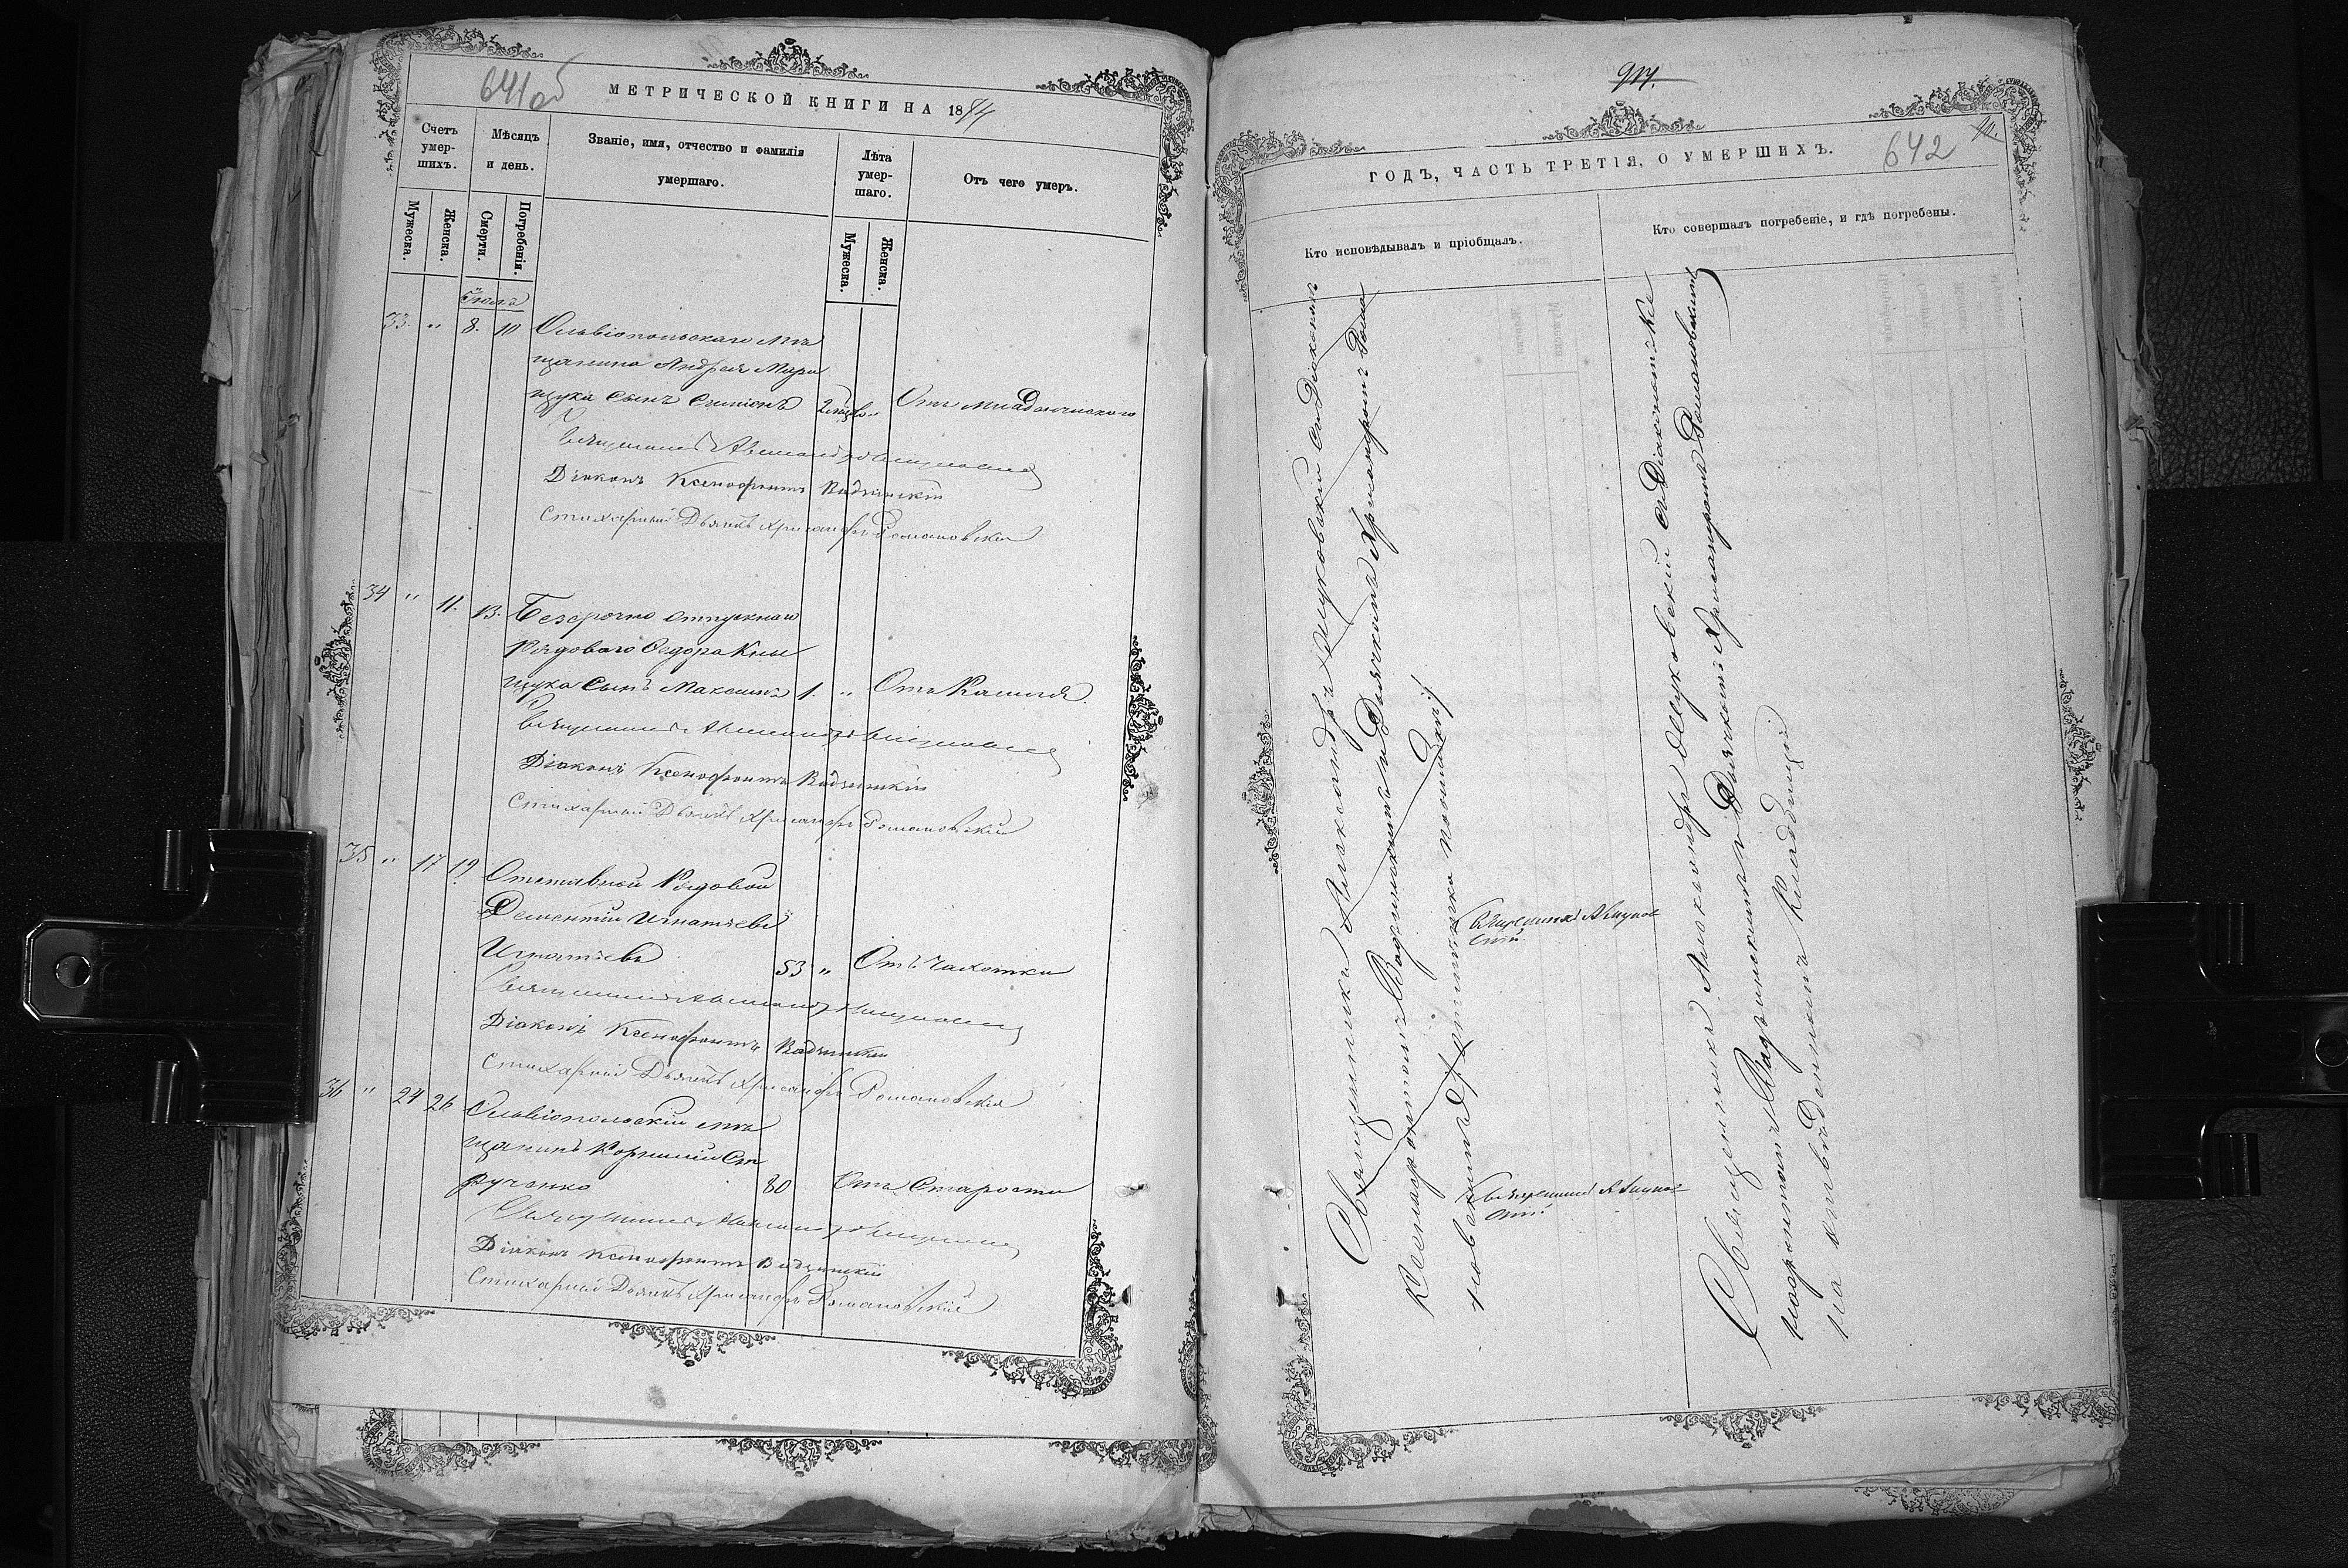 641об
МЕТРИЧЕСКОЙ КНИГИ НА 1874
Счетъ умер-шихъ.
Мѣсяцъ и день.
Званіе, имя, отчество и фамилія умершаго.
Лѣта умер-шаго.
Отъ чего умеръ.
Мужеска.
Женска.
Смерти.
Погребенія.
Мужеска.
Женска.
Іюля
33. " 8. 10 Ольвіопольскаго мѣ
щанина Андрея
щука сынъ Симеонъ От младенческаго
Священникъ Александръ
Діаконъ Ксенофонтъ Видзинскій
Стихарный Дьячекъ Хрисанфъ Романовскій
34 " 11. 13. Безсрочно отпускнаго
Рядоваго Ѳедора
щука сынъ Максимъ 1. " Отъ Кашля
Священникъ Александръ
Діаконъ Ксенофонтъ Видзинскій
Стихарный Дьячекъ Хрисанфъ Романовскій
35 " 17 19. Отставной Рядовой
Дементій Игнатьевъ
Игнатьевъ 53 " Отъ чахотки
Священникъ Александръ
Діаконъ Ксенофонтъ Видзинскій
Стихарный Дьячекъ Хрисанфъ Романовскій
36 " 24 26 Ольвіопольскій мѣ
щанинъ Корнилій Ст
рученко 80 Отъ Старости
Священникъ Александръ
Діаконъ Ксенофонтъ Видзинскій
Стихарный Дьячекъ Хрисанфъ Романовскій
642
ГОДЪ, ЧАСТЬ ТРЕТІЯ, О УМЕРШИХЪ.
Кто исповѣдывалъ и пріобщалъ.
Кто совершалъ погребеніе, и гдѣ погребены.
Священникъ Александръ съ Діакономъ
Ксенофонтомъ Видзинскимъ и Дьячкомъ Хрисанфомъ Рома
новскимъ
Священникъ
Священникъ
Священникъ Александръ съ Діакономъ Ксе
нофонтомъ Видзинскимъ и Дьячкомъ Хрисанфомъ Романовскимъ
на отведенномъ кладбищѣ